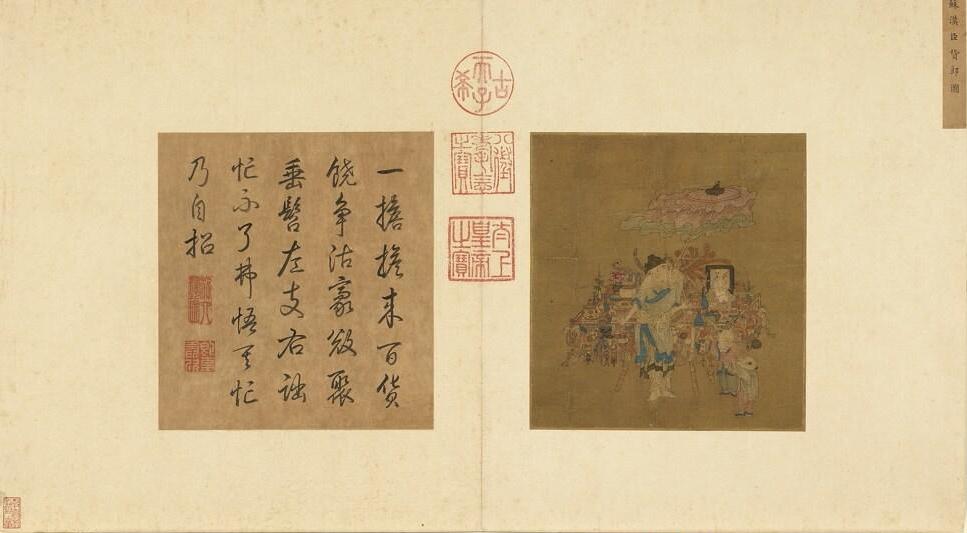 蘇漢臣貨郎圖
古稀天子
八徵耄念之寶
太上皇帝之寶
一擔擔來百貨
饒爭沽聚
垂髫左支右詘
忙不了弗悟其忙
乃自招